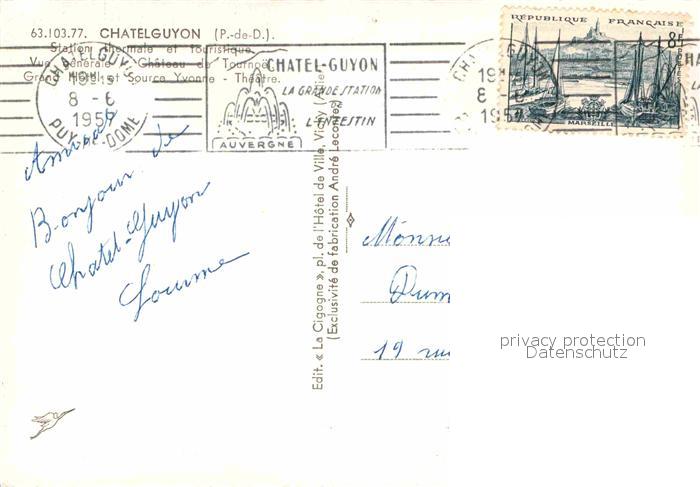 63.103.77. CHATELGUYON (P.-de-D.).
Station thermale et touristique.
Vue Générale - Château de Tournoël
Grand Hôtel et Source Yvonne - Théâtre.
CHATELGUYON
8 - 6
PUY-DE-DOME
CHATEL-GUYON
LA GRANDE STATION
L'INTESTIN
AUVERGNE
CHATELGUYON
19
8
REPUBLIQUE FRANÇAISE
8F
POSTES
MARSEILLE
CHA
Bonjour de
Chatel-Guyon
Edit. « La Cigogne », pl. de l'Hôtel de Ville, Vichy (Allier)
(Exclusivité de fabrication André Leconte)
Dum
19 rue
privacy protection
Datenschutz